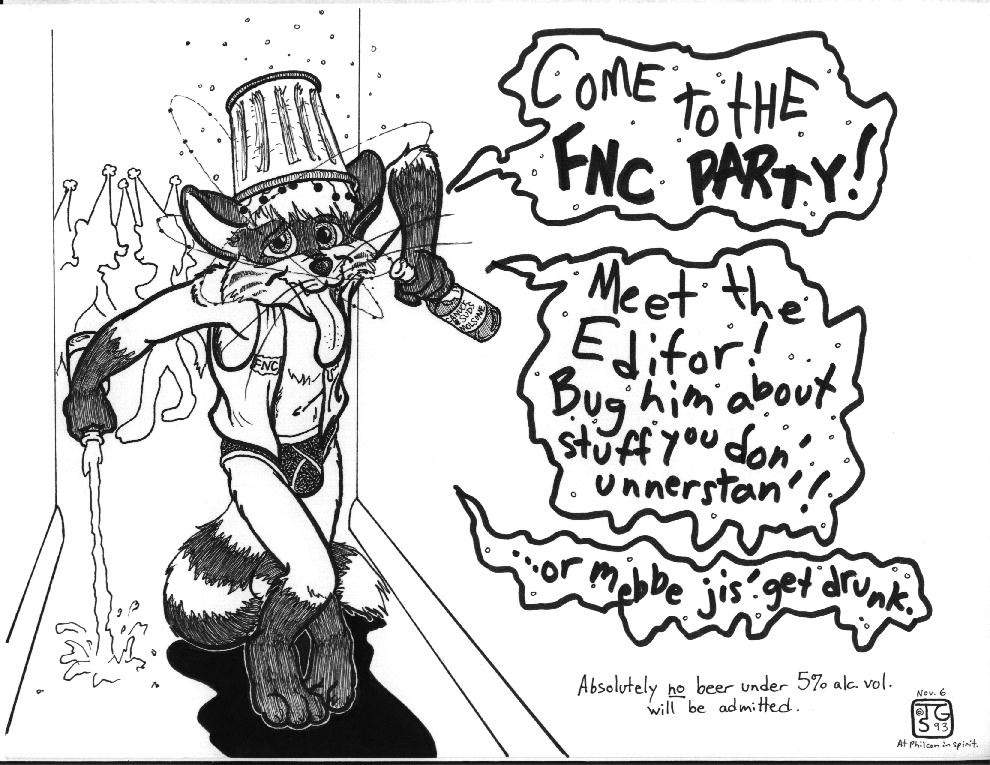 COME TO tHE
FNC PARTY!
Meet the
Editor!
Bug him about
stuff you don'
unnerstan'!
..or mebbe jis' get drunk.
FNC
SUDS
Absolutely no beer under 5% alc. vol.
will be admitted.
Nov. 6
© TG
S 93
At Philcon in spirit.